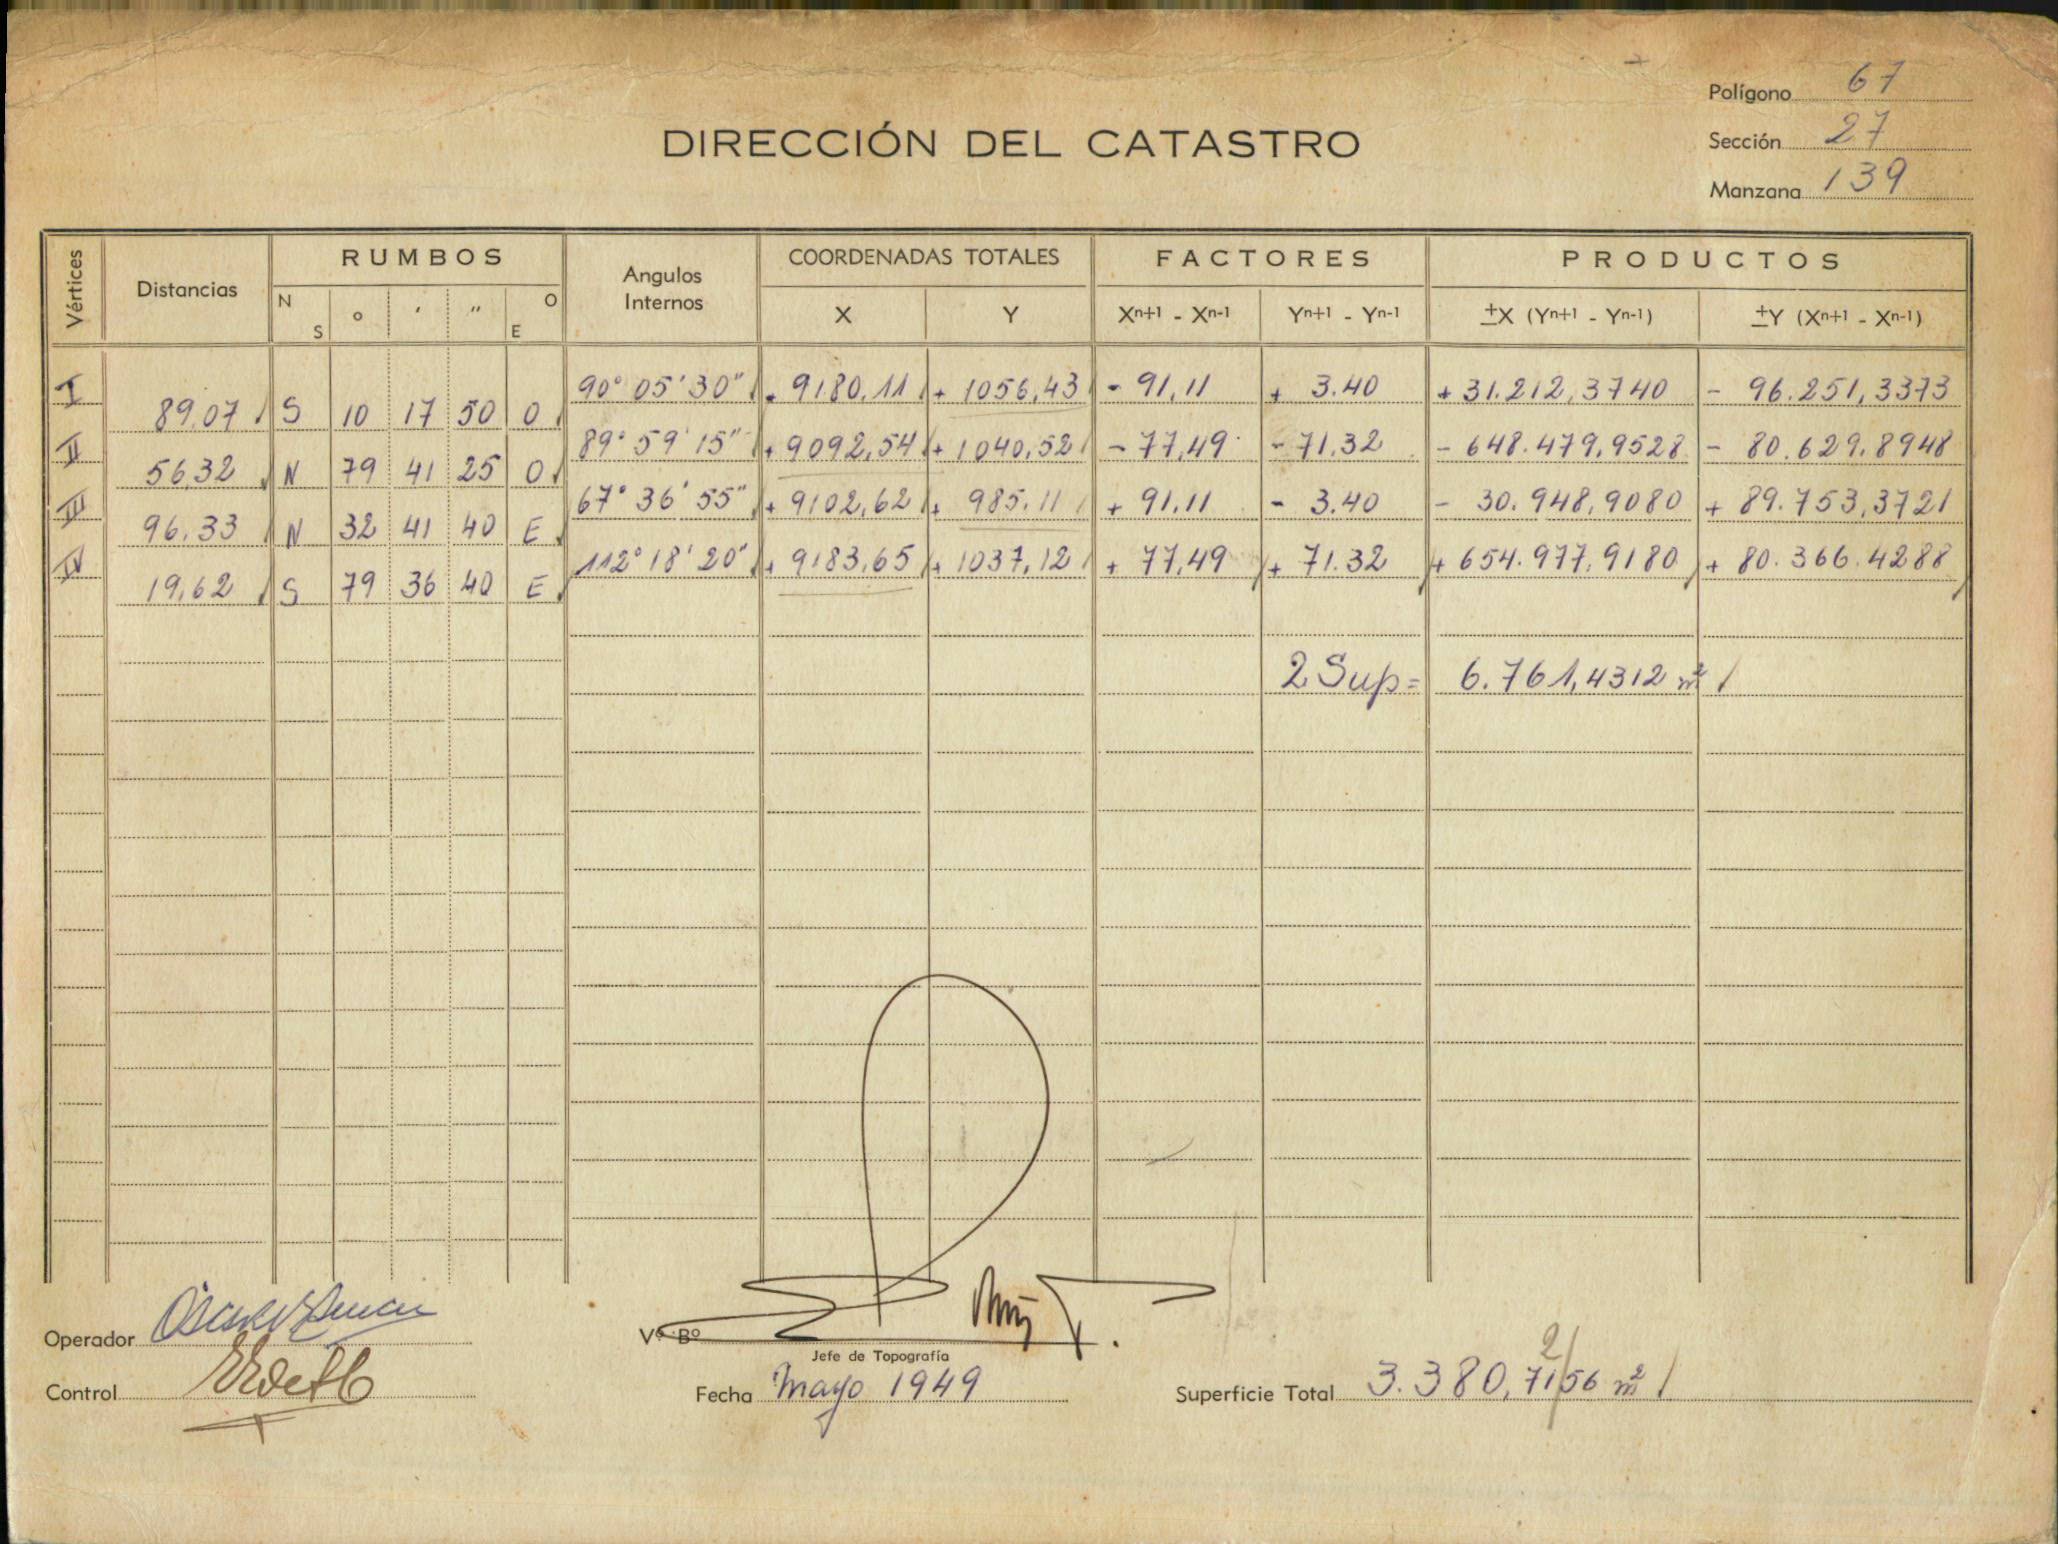 Polígono 67
DIRECCIÓN DEL CATASTRO
Sección 27
Manzana 139
Vértices Distancias RUMBOS Angulos Internos COORDENADAS TOTALES FACTORES PRODUCTOS
N S ° ' " O E X Y Xn+1 - Xn-1 Yn+1 - Yn-1 ±X (Yn+1 - Yn-1) ±Y (Xn+1 - Xn-1)
I 90° 05' 30" + 9180,11 + 1056,43 - 91,11 + 3.40 + 31.212,3740 - 96.251,3373
89,07 S 10 17 50 O
II 89° 59' 15" + 9092,54 + 1040,52 - 77,49 - 71,32 - 648.479,9528 - 80.629,8948
56,32 N 79 41 25 O
III 67° 36' 55" + 9102,62 + 985,11 + 91,11 - 3.40 - 30.948,9080 + 89.753,3721
96,33 N 32 41 40 E
IV 112° 18' 20" + 9183,65 + 1037,12 + 77,49 + 71.32 + 654.977,9180 + 80.366.4288
19,62 S 79 36 40 E
2 Sup = 6.761,4312 m²
Operador
Vº Bº
Jefe de Topografía
Control
Fecha Mayo 1949
Superficie Total 3.380,7156 m²
2